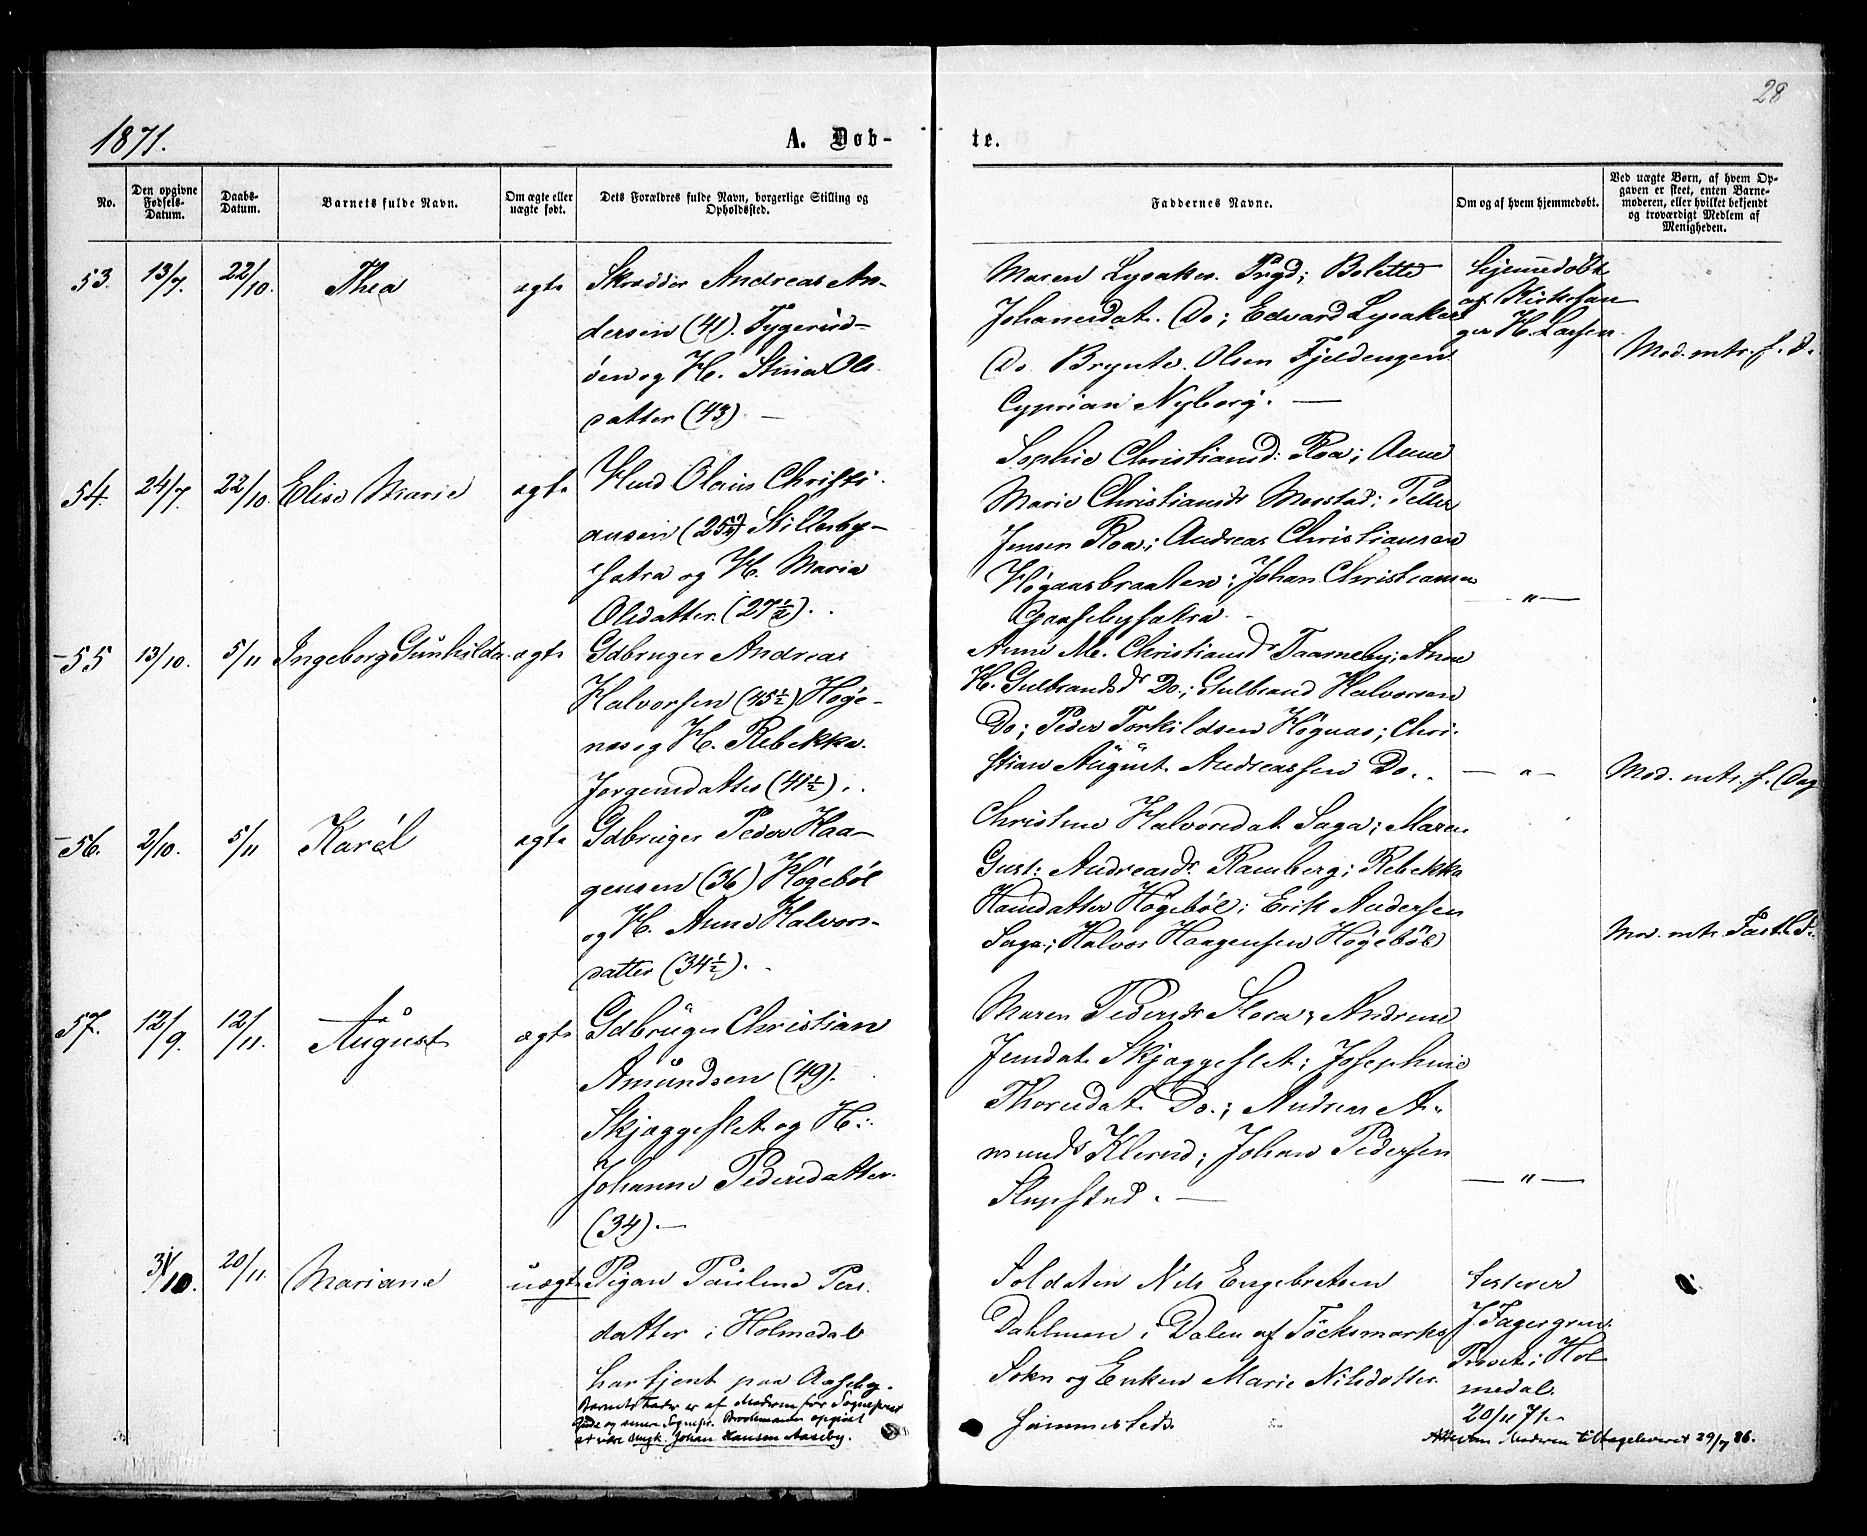 28
1871.
A. Døb-
te.
No.
Den opgivne Fødsels-Datum.
Daabs-Datum.
Barnets fulde Navn.
Om ægte eller uægte født.
Dets Forældres fulde Navn, borgerlige Stilling og Opholdssted.
Faddernes Navne.
Om og af hvem hjemmedøbt.
Ved uægte Børn, af hvem Opgaven er skeet, enten Barnemoderen, eller hvilket bekjendt og troværdigt Medlem af Menigheden.
53. 13/7. 22/10. Thea ægte
Skrædder Andreas An-
dersen (41). Tygerud-
øen og H. Stina Ols-
datter (43). —
Maren Lysaker. Pryd; Bolette
Johanesdat. Do; Edvard Lysaker
Do Brynte. Olsen Fjeldengen
Cyprian Nyborg. —
hjemmedøbt
af Kirkesan
ger H. Larsen.
Mod. mtr. f. D.
54. 24/7. 22/10. Elise Marie ægte
Hmd Olaus Christi-
ansen (25½) Killerby-
sætra og H. Maria
Olsdatter. (27½).
Sophie Christiansd: Roa; Anne
Marie Christiansdr Mosstad; Petter
Jensen Roa; Andreas Christiansen
Høgaasbraaten; Johan Christiansen
Gaasebysætra.
— " —
55 13/10. 5/11 Ingeborg Gunhilda ægte
Gdbruger Andreas
Halvorsen (45½) Høge-
næs og H. Rebekka
Jørgensdatter (41½).
Anne M. Christiansdr Taarneby; Anne
H. Gulbrandsdr Do; Gulbrand Halvorsen
Do; Peder Torkildsen Høgnæs; Chri-
stian August Andreassen Do.
— " —
Mod. mtr. f. Dag
56. 2/10. 5/11 Karel ægte
Gdbruger Peder Haa-
gensen (36) Høgebøl
og H. Anne Halvors-
datter (34½).
Christine Halvorsdat Saga; Maren
Gust: Andreasdr Ramberg; Rebekka
Hansdatter Høgebøl; Erik Andersen
Saga; Halvor Haagensen Høgebøl
Mod. mtr. Fast. S.
57. 12/9. 12/11. August ægte
Gdbruger Christian
Amundsen (49).
Skjæggeflet og H:
Johanne Pedersdatter
(34). —
Maren Pedersdr Slora; Andrine
Jensdat. Skjæggeflet; Josephine
Thoresdat. Do.; Andreas A-
munds Klerud; Johan Pedersen
Slupstad. —
— " —
31/10. 20/11. Mariane uægte
Pigen Pauline Pers
datter i Holmedal
har tjent paa Aaseby.
Barnets Fader er af Moderen for Sogneprest
og senere Sognepr. Brockmann opgivet
at være Ungk. Johan Hansen Aaseby.
Soldaten Nils Engebretsen
Dahlman i Dalen af Töcksmarks
Sokn og Enken Marie Nilsdotter
Hammersteds
testerer
J. Fagergren.
Provst i Hol
medal.
20/11 71.
Attesten Moderen tilbageleveret 29/7 86.